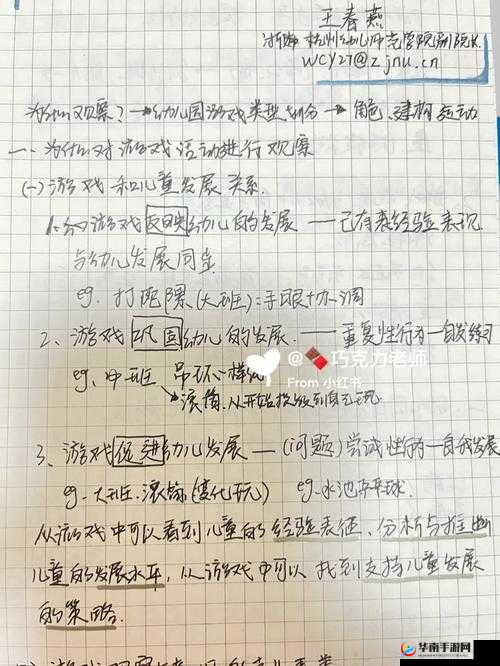 王春燕
浙师 杭州幼儿师范学院副院长
WCY27@zjnu.cn
为什么观察？→幼儿园游戏类型划分→角色、建构、运动
一、为什么对游戏活动进行观察
(一)游戏和儿童发展关系.
1、幼游戏反映幼儿的发展——已有表经验表现
与幼儿发展同步
eg. 打陀螺(大班):手眼+协调
2、游戏巩固幼儿的发展.——重复性行为—自发练习
eg、中班 吊环
滚筒,从开始
@🍫巧克力老师
From 小红书
3、游戏促进幼儿发展—(问题)尝试性行为—自我发展
eg.大班.滚筒(变化玩) eg.水池
从游戏中可以看到儿童的经验表征、分析与推断
儿童的发展水平,从游戏中可以找到支持儿童发展
的策略.
华南手游网